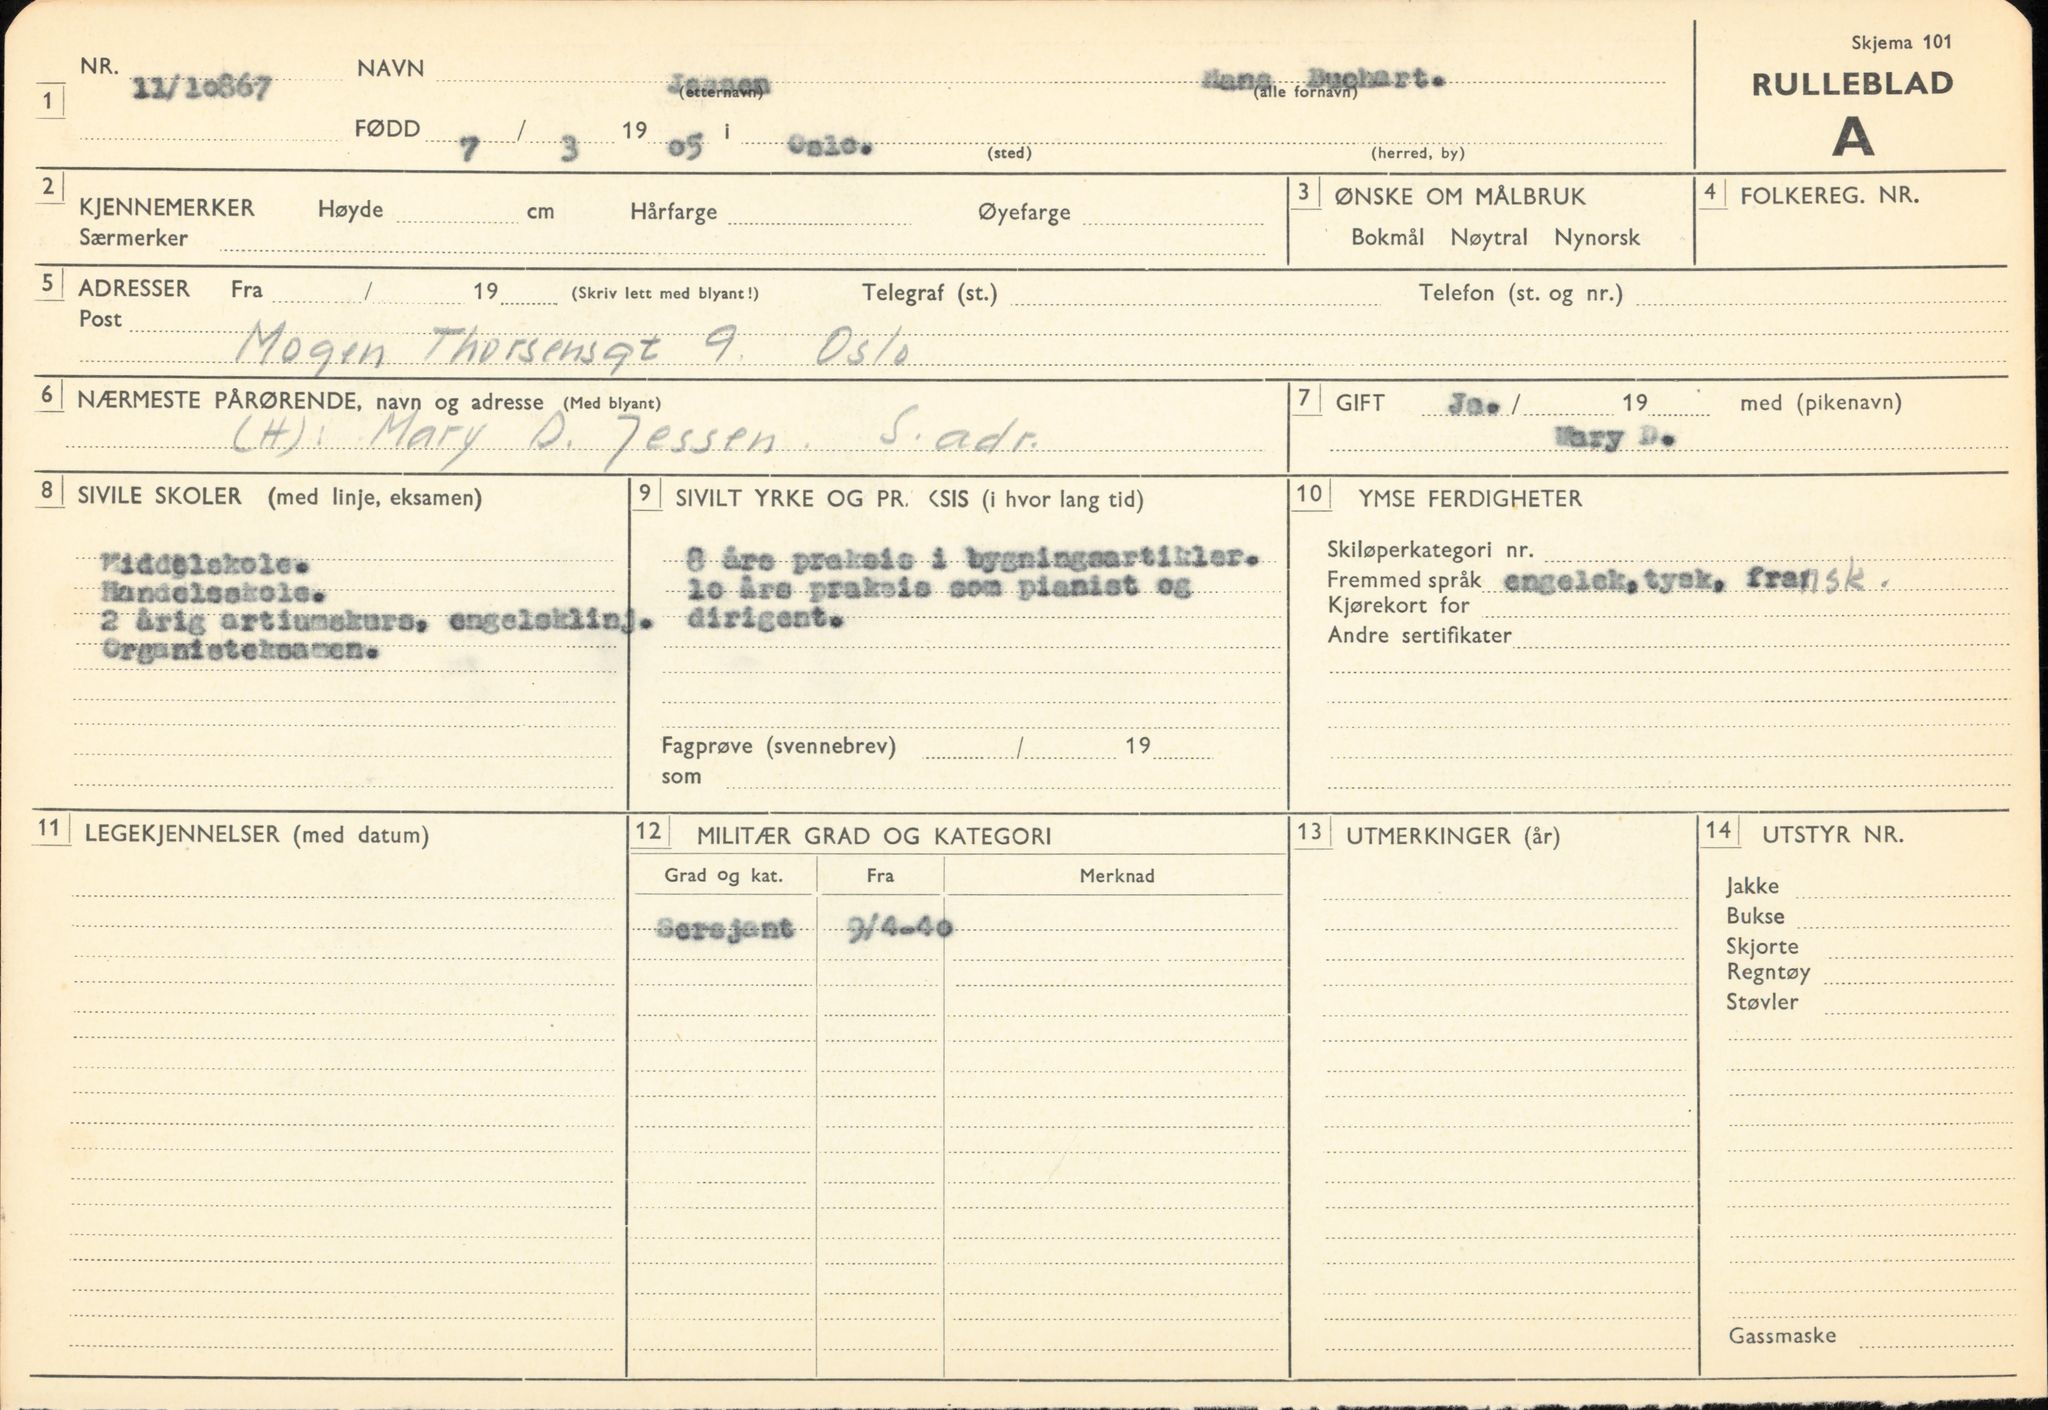 Skjema 101
RULLEBLAD
A
1 NR. 11/10867 NAVN Jessen Hans Buchart.
(etternavn) (alle fornavn)
FØDD 7 / 3 19 05 i Oslo. (sted) (herred, by)
2 KJENNEMERKER Høyde cm Hårfarge Øyefarge
Særmerker
3 ØNSKE OM MÅLBRUK
Bokmål Nøytral Nynorsk
4 FOLKEREG. NR.
5 ADRESSER Fra / 19 (Skriv lett med blyant!) Telegraf (st.) Telefon (st. og nr.)
Post
Mogen Thorsensgt 9. Oslo
6 NÆRMESTE PÅRØRENDE, navn og adresse (Med blyant)
(H): Mary D. Jessen. S. adr.
7 GIFT Ja. / 19 med (pikenavn)
Mary D.
8 SIVILE SKOLER (med linje, eksamen)
Middelskole.
Handelsskole.
2 årig artiumskurs, engelsklinj.
Organisteksamen.
9 SIVILT YRKE OG PR. KSIS (i hvor lang tid)
8 års praksis i bygningsartikler.
10 års praksis som pianist og
dirigent.
Fagprøve (svennebrev) / 19
som
10 YMSE FERDIGHETER
Skiløperkategori nr.
Fremmed språk engelsk, tysk, fransk.
Kjørekort for
Andre sertifikater
11 LEGEKJENNELSER (med datum)
12 MILITÆR GRAD OG KATEGORI
Grad og kat. Fra Merknad
Sersjant 9/4-40
13 UTMERKINGER (år)
14 UTSTYR NR.
Jakke
Bukse
Skjorte
Regntøy
Støvler
Gassmaske